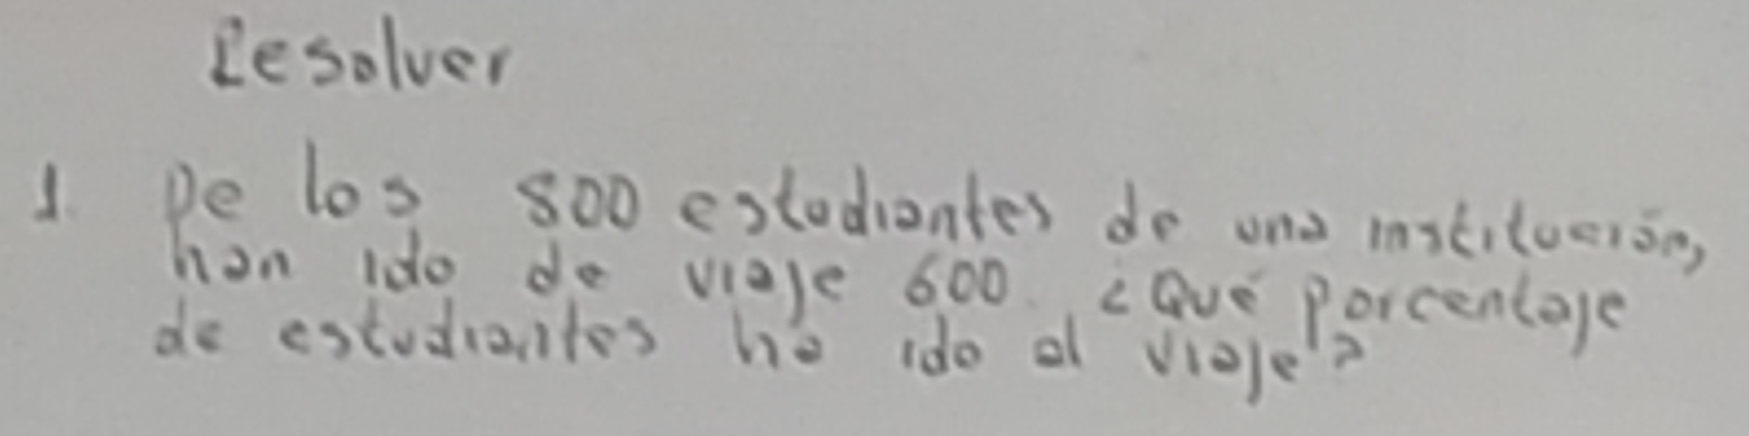 Resolver
1. De los 800 estudiantes de una institución,
han ido de viaje 600. ¿Qué porcentaje
de estudiantes ha ido al viaje?